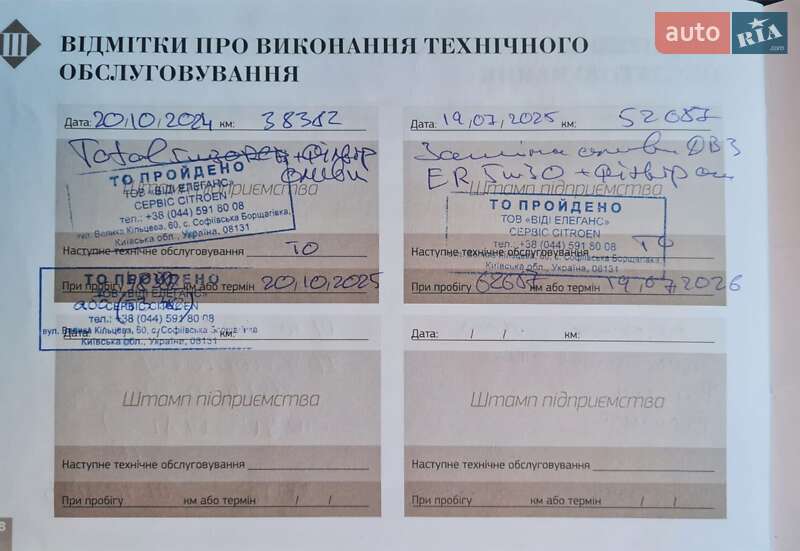 III
auto RIA.com
ВІДМІТКИ ПРО ВИКОНАННЯ ТЕХНІЧНОГО
ОБСЛУГОВУВАННЯ
Дата: 20,10,2024 км: 38382
Total + фільтр
оливи
ТО ПРОЙДЕНО
ТОВ «ВІДІ ЕЛЕГАНС»
СЕРВІС CITROEN
тел.: +38 (044) 591 80 08
вул. Велика Кільцева, 60, с. Софіївська Борщагівка,
Київська обл., Україна, 08131
Наступне технічне обслуговування ТО
При пробігу км або термін 20,10,2025
ТО ПРОЙДЕНО
ТОВ «ВІДІ ЕЛЕГАНС»
СЕРВІС CITROEN
тел.: +38 (044) 591 80 08
вул. Велика Кільцева, 60, с. Софіївська Борщагівка
Київська обл., Україна, 08131
Дата: 19,07,2025 км: 52687
Заміна оливи ДВЗ
+ фільтр
ТО ПРОЙДЕНО
ТОВ «ВІДІ ЕЛЕГАНС»
СЕРВІС CITROEN
тел.: +38 (044) 591 80 08
вул. Велика Кільцева, 60, с. Софіївська Борщагівка,
Київська обл., Україна, 08131
Наступне технічне обслуговування ТО
При пробігу 62687 км або термін 19,07,2026
Дата: км: / /
Штамп підприємства
Наступне технічне обслуговування
При пробігу км або термін / /
Дата: / / км:
Штамп підприємства
Наступне технічне обслуговування
При пробігу км або термін / /
8